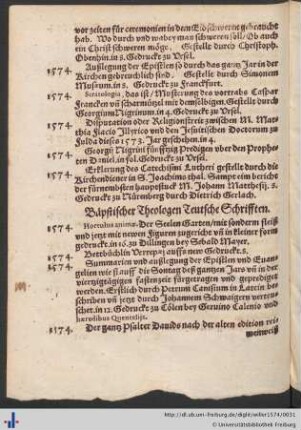 vor zeiten für ceremonien in dem Eidschweren gebraucht
hab. Wo durch und wabey man schweren soll/ Ob auch
ein Christ schweren möge. Gestelle durch Christoph.
Obenhin. in 8. Gedruckt zu Ursel.
1574. Außlegung der Episteln so durch das gantz Jar in der
Kirchen gebreuchlich sind. Gestelle durch Simonem
Musæum. in 8. Gedruckt zu Franckfurt.
1574. das ist/ Musterung des vortrabs Caspar
Francken vñ scharmützel mit demselbigen. Gestelt durch
Georgium Nigrinum. in 4. Gedruckt zu Ursel.
1574. Disputation oder Religionstreit zwischen M. Mat-
thia Flacio Illyrico vnd den Jesuitischen Doctorum zu
Fulda diese 1573. Jar geschehen. in 4.
1574. Georgii Nigrini fünffzig Predigen vber den Prophe-
ten Daniel. in fol. Gedruckt zu Ursel.
1574. Erklerung des Catechismi Lutheri gestelt durch die
Kirchendiener in S. Joachims thal. Sampt eim bericht
der fürnembsten hauptstuck M. Johann Matthesij. 8.
Gedruckt zu Nürmberg durch Dietrich Gerlach.
Bäpstischer Theologen Teutsche Schrifften.
1574. Hortulus animæ. Der Seelen Garten/ mit sondern fleiß
vnd jetzt mit neuen Figuren zugericht vñ in kleiner form
gedruckt. in 16. zu Dillingen bey Sebald Mayer.
1574. Bettbüchlin Verrepæi auffs new Gedruckt. 8.
1574. Summarien vnd außlegung der Epistlen vnd Euan-
gelien wie sie auff die Sontag deß gantzen Jars vñ in der
viertzigtägigen fastenzeit fürgetragen vnd geprediget
werden. Erstlich durch Petrum Canisium in Latein be-
schriben vñ jetzt durch Johannem Schwaigern verteu-
schet. in 12. Gedruckt zu Cölen bey Geruino Calenio vnd
hæredibus Quentelijs.
1574. Der gantz Psalter Dauids nach der alten edition reim
weiß
http://dl.ub.uni-freiburg.de/diglit/willer1574/0031
© Universitätsbibliothek Freiburg